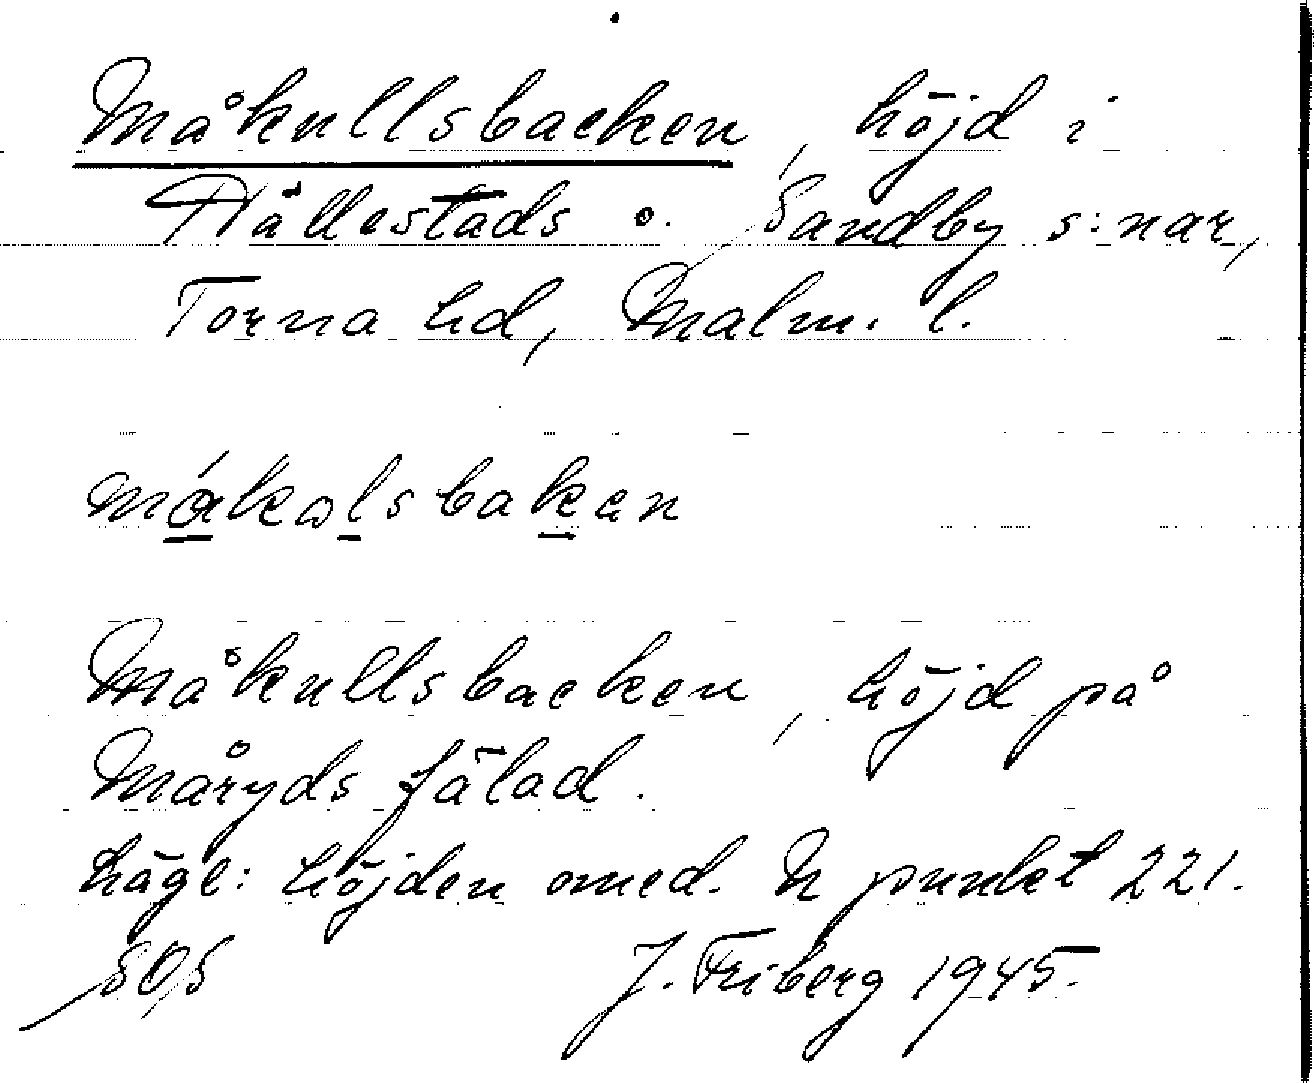 Måkullsbacken, höjd i
Hällestads o. Sandby s:nar,
Torna hd, Malm. l.
Måkullsbacken, höjd på
Måryds fälad.
Läge: höjden omed. N punkt 221.
SOS J. Friberg 1945.